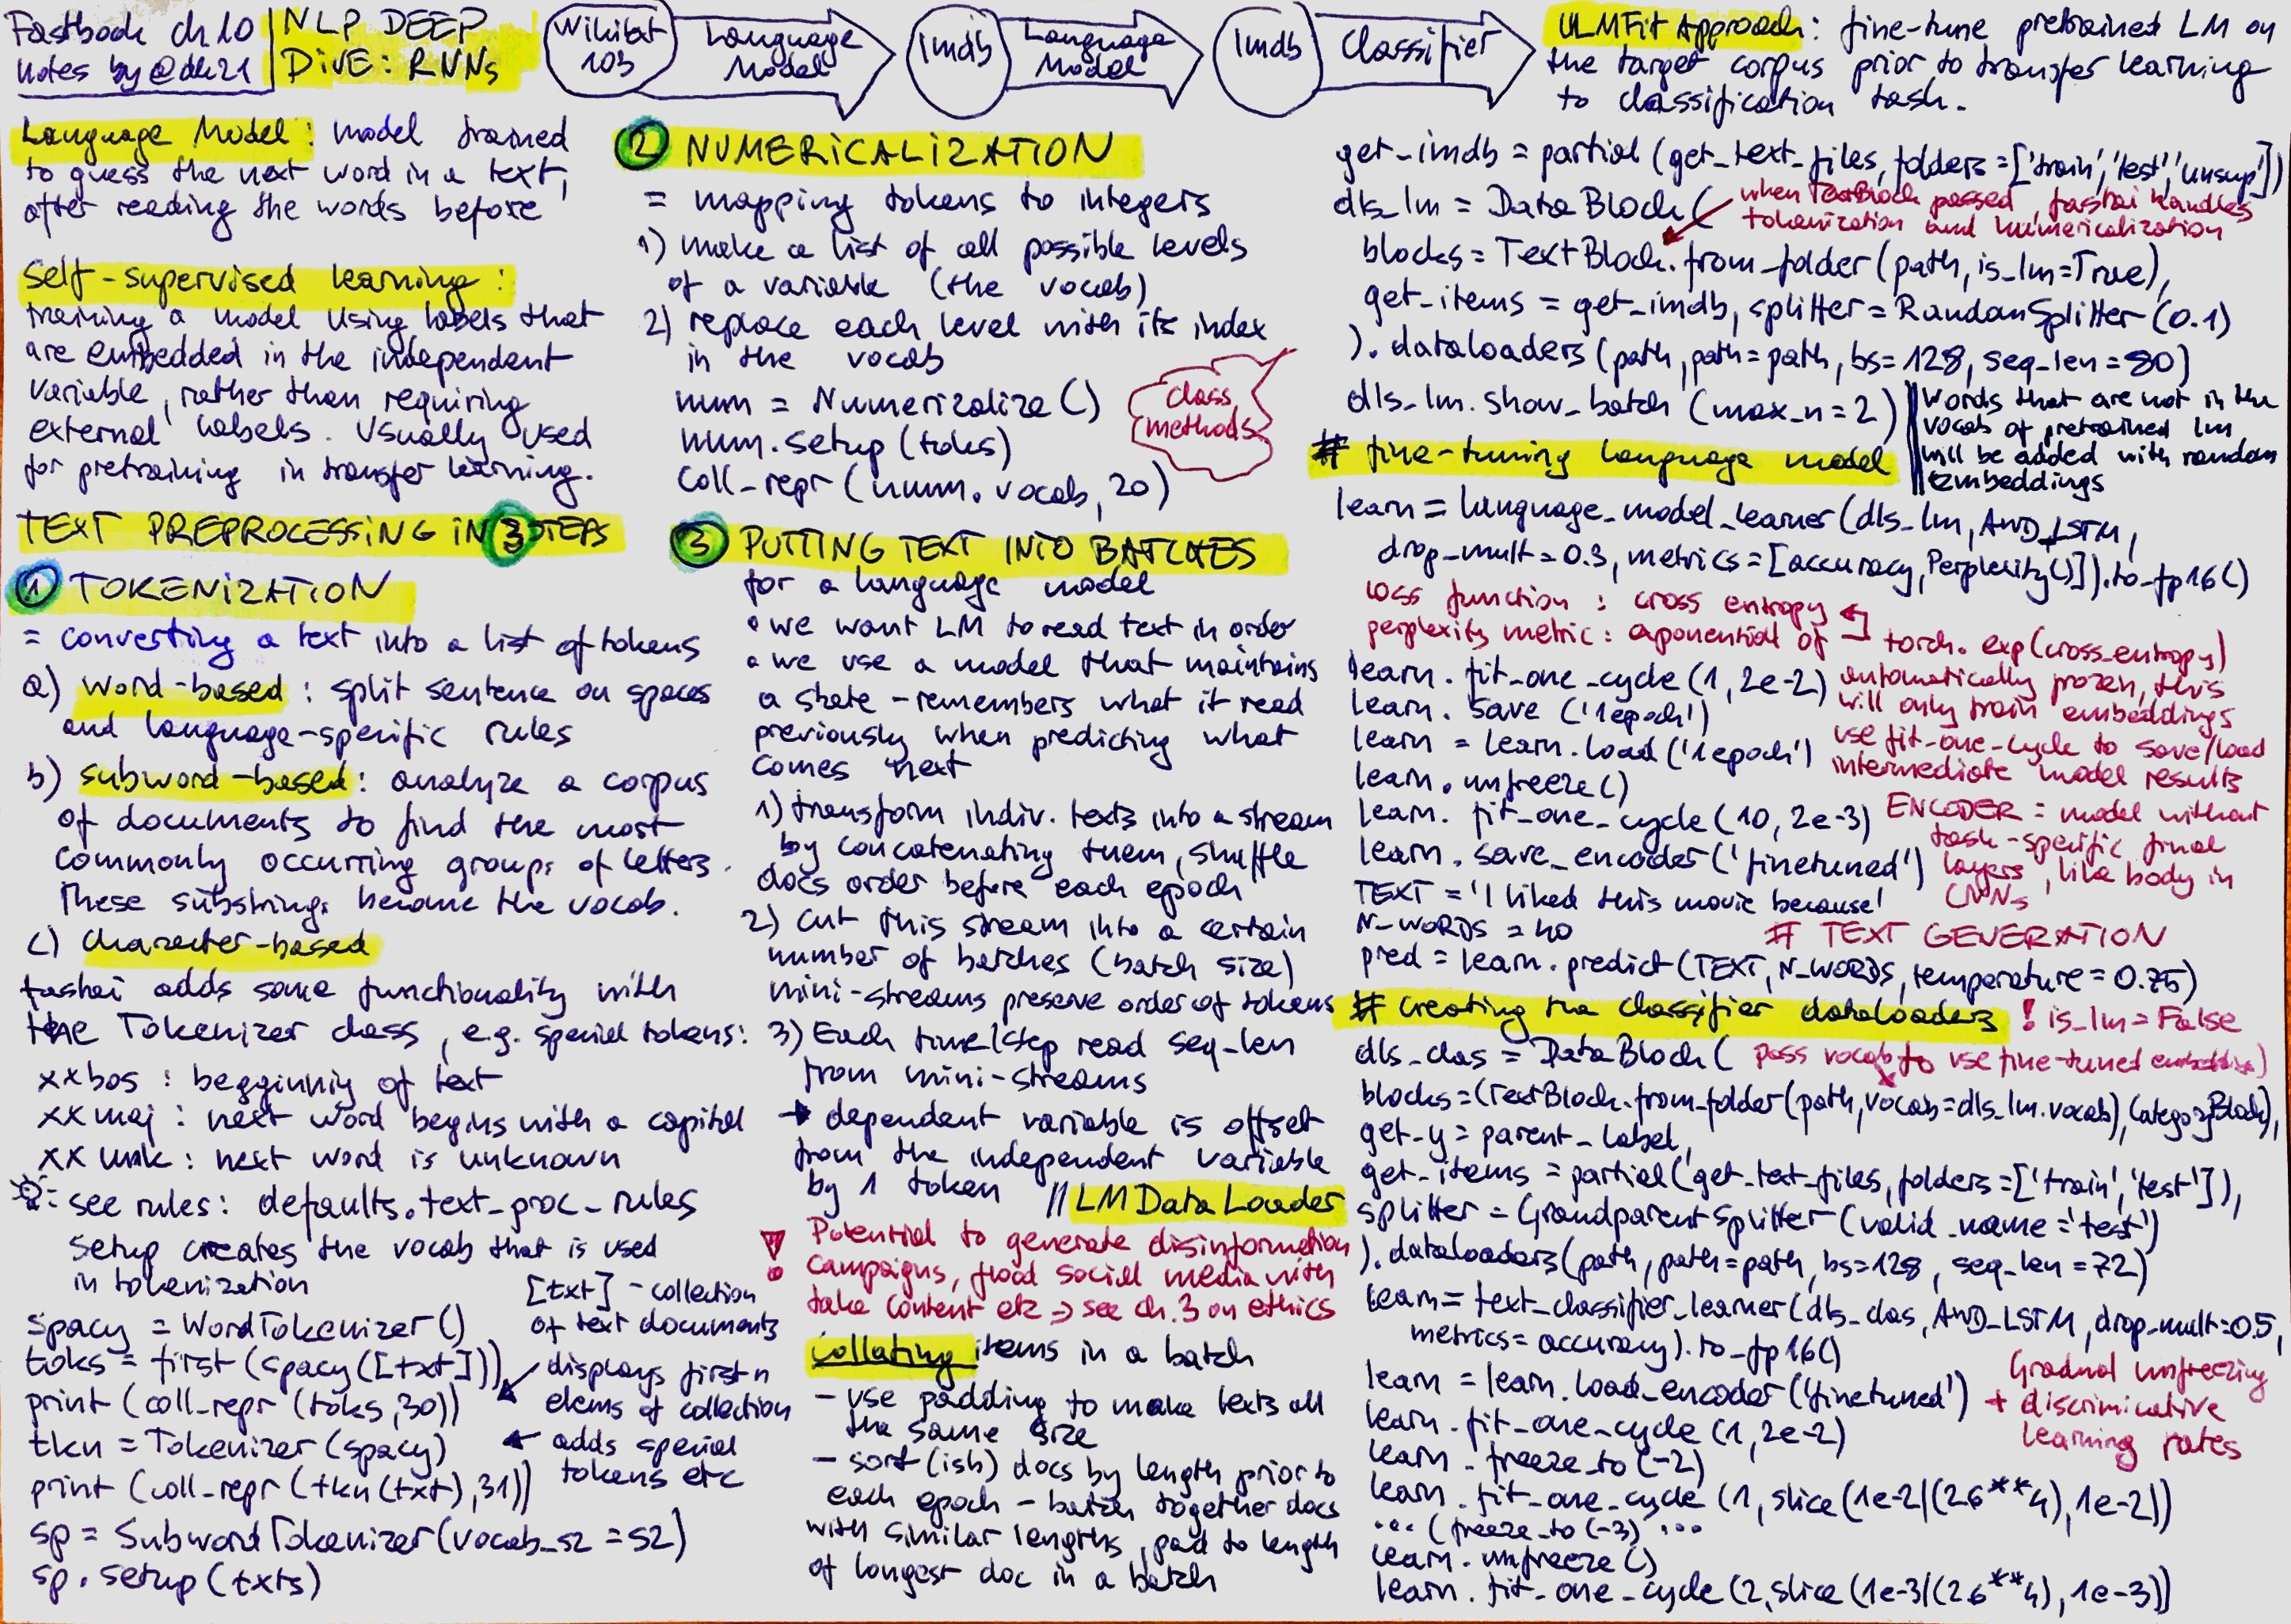 Fastbook ch 10
notes by @dh21
NLP DEEP
DIVE: RNNs
Wikitext
103
Language
Model
Imdb
Language
Model
Imdb
Classifier
ULMFit Approach: fine-tune pretrained LM on
the target corpus prior to transfer learning
to classification task.
Language Model: model trained
to guess the next word in a text,
after reading the words before
Self-supervised learning:
training a model using labels that
are embedded in the independent
variable, rather than requiring
external labels. Usually used
for pretraining in transfer learning.
TEXT PREPROCESSING IN 3 STEPS
1 TOKENIZATION
= converting a text into a list of tokens
a) word-based: split sentence on spaces
and language-specific rules
b) subword-based: analyze a corpus
of documents to find the most
commonly occurring groups of letters.
These substrings become the vocab.
c) character-based
fastai adds some functionality with
the Tokenizer class, e.g. special tokens:
xxbos: begginniy of text
xxmaj: next word begins with a capital
xxunk: next word is unknown
see rules: defaults.text_proc_rules
setup creates the vocab that is used
in tokenization
[txt] - collection
of text documents
spacy = WordTokenizer()
toks = first(spacy([txt]))
print(coll_repr(toks,30))
displays first n
elems of collection
tkn = Tokenizer(spacy)
adds special
tokens etc
print(coll_repr(tkn(txt),31))
sp = SubwordTokenizer(vocab_sz=sz)
sp.setup(txts)
2 NUMERICALIZATION
= mapping tokens to integers
1) make a list of all possible levels
of a variable (the vocab)
2) replace each level with its index
in the vocab
num = Numericalize()
num.setup(toks)
coll_repr(num.vocab,20)
class
methods
3 PUTTING TEXT INTO BATCHES
for a language model
• we want LM to read text in order
• we use a model that maintains
a state - remembers what it read
previously when predicting what
comes next
1) transform indiv. texts into a stream
by concatenating them, shuffle
docs order before each epoch
2) cut this stream into a certain
number of batches (batch size)
mini-streams preserve order of tokens
3) Each time/step read seq_len
from mini-streams
→ dependent variable is offset
from the independent variable
by 1 token // LMDataLoader
! Potential to generate disinformation
campaigns, flood social media with
fake content etc → see ch.3 on ethics
Collating items in a batch
- use padding to make texts all
the same size
- sort(ish) docs by length prior to
each epoch - batch together docs
with similar lengths, pad to length
of longest doc in a batch
get_imdb = partial(get_text_files, folders=['train','test','unsup'])
dls_lm = DataBlock(
when TextBlock passed, fastai handles
tokenization and numericalization
blocks = TextBlock.from_folder(path, is_lm=True),
get_items = get_imdb, splitter = RandomSplitter(0.1)
).dataloaders(path, path=path, bs=128, seq_len=80)
dls_lm.show_batch(max_n=2)
Words that are not in the
vocab of pretrained lm
will be added with random
embeddings
# fine-tuning language model
learn = language_model_learner(dls_lm, AWD_LSTM,
drop_mult=0.3, metrics=[accuracy, Perplexity()]).to_fp16()
loss function: cross entropy
perplexity metric: exponential of
torch.exp(cross_entropy)
learn.fit_one_cycle(1, 2e-2)
automatically frozen, this
will only train embeddings
learn.save('1epoch')
learn = learn.load('1epoch')
use fit-one-cycle to save/load
intermediate model results
learn.unfreeze()
learn.fit_one_cycle(10, 2e-3)
learn.save_encoder('finetuned')
ENCODER = model without
task-specific final
layers, like body in
CNNs
TEXT = 'I liked this movie because'
N_WORDS = 40
# TEXT GENERATION
pred = learn.predict(TEXT, N_WORDS, temperature=0.75)
# creating the classifier dataloaders ! is_lm = False
dls_clas = DataBlock(
pass vocab to use fine-tuned embeddings)
blocks=(TextBlock.from_folder(path, vocab=dls_lm.vocab), CategoryBlock),
get_y = parent_label,
get_items = partial(get_text_files, folders=['train','test']),
splitter = GrandparentSplitter(valid_name='test')
).dataloaders(path, path=path, bs=128, seq_len=72)
learn = text_classifier_learner(dls_clas, AWD_LSTM, drop_mult=0.5,
metrics=accuracy).to_fp16()
learn = learn.load_encoder('finetuned')
learn.fit_one_cycle(1, 2e-2)
Gradual unfreezing
+ discriminative
learning rates
learn.freeze_to(-2)
learn.fit_one_cycle(1, slice(1e-2/(2.6**4), 1e-2))
... (freeze_to(-3) ...
learn.unfreeze()
learn.fit_one_cycle(2, slice(1e-3/(2.6**4), 1e-3))